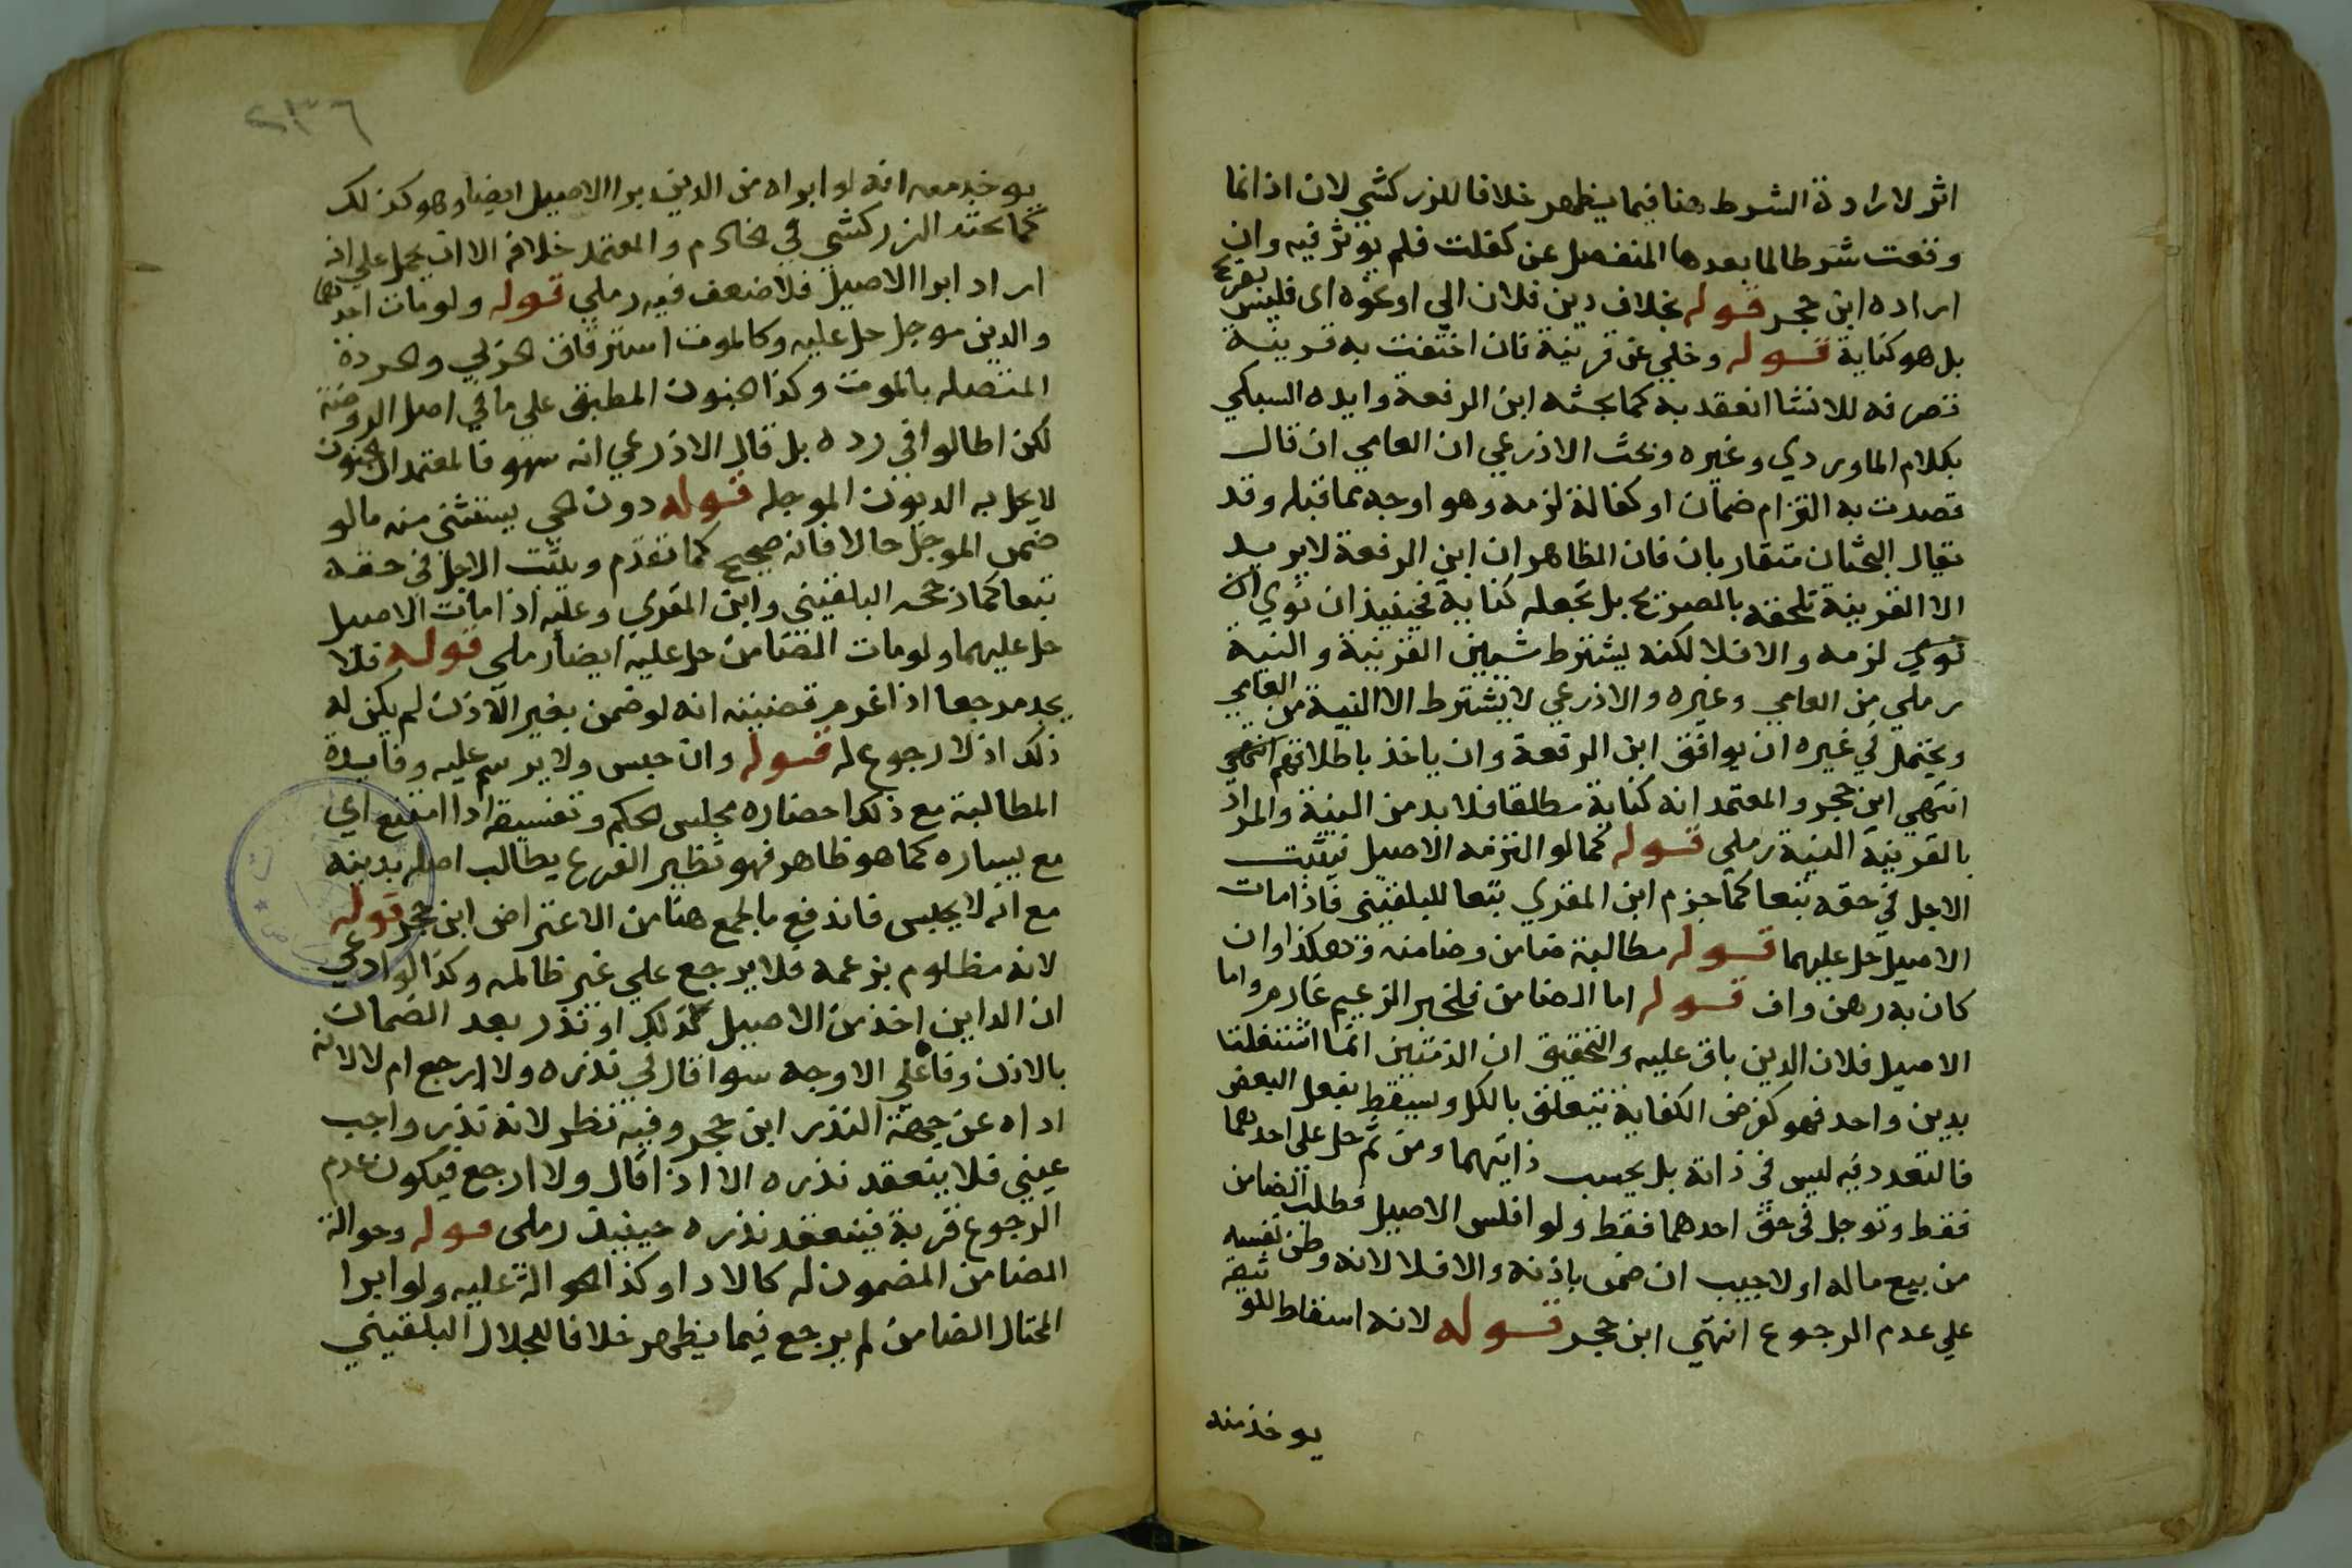 اثر لارادة الشرط هنا فيما يظهر خلافا للزركشي لان اذا انما
وقعت شرطا لما بعدها المنفصل عن كفلت فلم يوثر فيه وان
اراده ابن حجر قوله بخلاف دين فلان الي او نحوه اى فليس بصريح
بل هو كناية قوله وخلي عن قرينة فان احتفت به قرينة
تصرفه للانشا انعقد به كما بحثه ابن الرفعة وايده السبكي
بكلام الماوردي وغيره وبحث الاذرعي ان العامي ان قال
قصدت به التزام ضمان او كفالة لزمه وهو اوجه مما قبله وقد
يقال البحثان متقاربان فان الظاهر ان ابن الرفعة لا يريد
الا القرينة تلحقه بالصريح بل تجعله كناية فحينيذ ان نوي ان
نوي لزمه والا فلا لكنه يشترط شيين القرينة والنية
رملي من العامي وغيره والاذرعي لا يشترط الا النية من العامي
ويحتمل في غيره ان يوافق ابن الرفعة وان ياخذ باطلاقهم انتهي
انتهي ابن حجر والمعتمد انه كناية مطلقا فلا بد من النية والمراد
بالقرينة النية رملي قوله كما لو التزمه الاصيل فيثبت
الاجل في حقه تبعا كما جزم ابن المقري تبعا للبلقيني فاذا مات
الاصيل حل عليهما قوله مطالبة ضامن وضامنه وهكذا وان
كان به رهن واف قوله اما الضامن فلخبر الزعيم غارم واما
الاصيل فلان الدين باق عليه والتحقيق ان الذمتين انما اشتغلتا
بدين واحد فهو كفرض الكفاية يتعلق بالكل ويسقط بفعل البعض
فالتعدد فيه ليس في ذاته بل بحسب ذاتيهما ومن ثم حل على احدهما
فقط وتوجل في حق احدهما فقط ولو افلس الاصيل فطلب الضامن
من بيع ماله اولا جيب ان ضمن باذنه والا فلا لانه وطن نفسه
علي عدم الرجوع انتهي ابن حجر قوله لانه اسقاط للوثيقة
يوخذ منه
٢٣٦
يوخذ معه انه لو ابراه من الدين برا الاصيل ايضا وهو كذلك
كما بحثه الزركشي في الخادم والمعتمد خلافه الا ان يحمل علي انه
اراد ابرا الاصيل فلا ضعف فيه رملي قوله ولو مات احدهما
والدين موجل حل عليه وكالموت استرقاق الحربي والردة
المتصله بالموت وكذا الجنون المطبق علي ما في اصل الروضة
لكن اطالوا في رده بل قال الاذرعي انه سهو فالمعتمد ان الجنون
لا يحل به الديون الموجله قوله دون الحي يستثنى منه ما لو
ضمن الموجل حالا فانه صحيح كما تقدم ويثبت الاجل في حقه
تبعا كما رجحه البلقيني وابن المقري وعليه اذا مات الاصيل
حل عليهما ولو مات الضامن حل عليه ايضا رملي قوله فلا
يجد مرجعا اذا غرم قضيته انه لو ضمن بغير الاذن لم يكن له
ذلك اذ لا رجوع له قوله وان حبس ولا يرسم عليه وفايدة
المطالبة مع ذلك احضاره مجلس الحكم وتفسيقه اذا امتنع اي
مع يساره كما هو ظاهر فهو نظير الفرع يطالب اصله بدينه
مع انه لا يحبس فاندفع ما لجمع هنا من الاعتراض ابن حجر قوله
لانه مظلوم بزعمه فلا يرجع علي غير ظالمه وكذا لو ادعي
ان الداين اخذ من الاصيل كذلك او نذر بعد الضمان
بالاذن وفا علي الاوجه سوا قال في نذره ولا ارجع ام لا لانه
اداه عن جهة النذر ابن حجر وفيه نظر لانه نذر واجب
عيني فلا ينعقد نذره الا اذا قال ولا ارجع فيكون عدم
الرجوع قربة فينعقد نذره حينيذ رملي قوله وحوالة
الضامن المضمون له كالاداو كذا الحوالة عليه ولو ابرا
المحتال الضامن لم يرجع فيما يظهر خلافا للجلال البلقيني